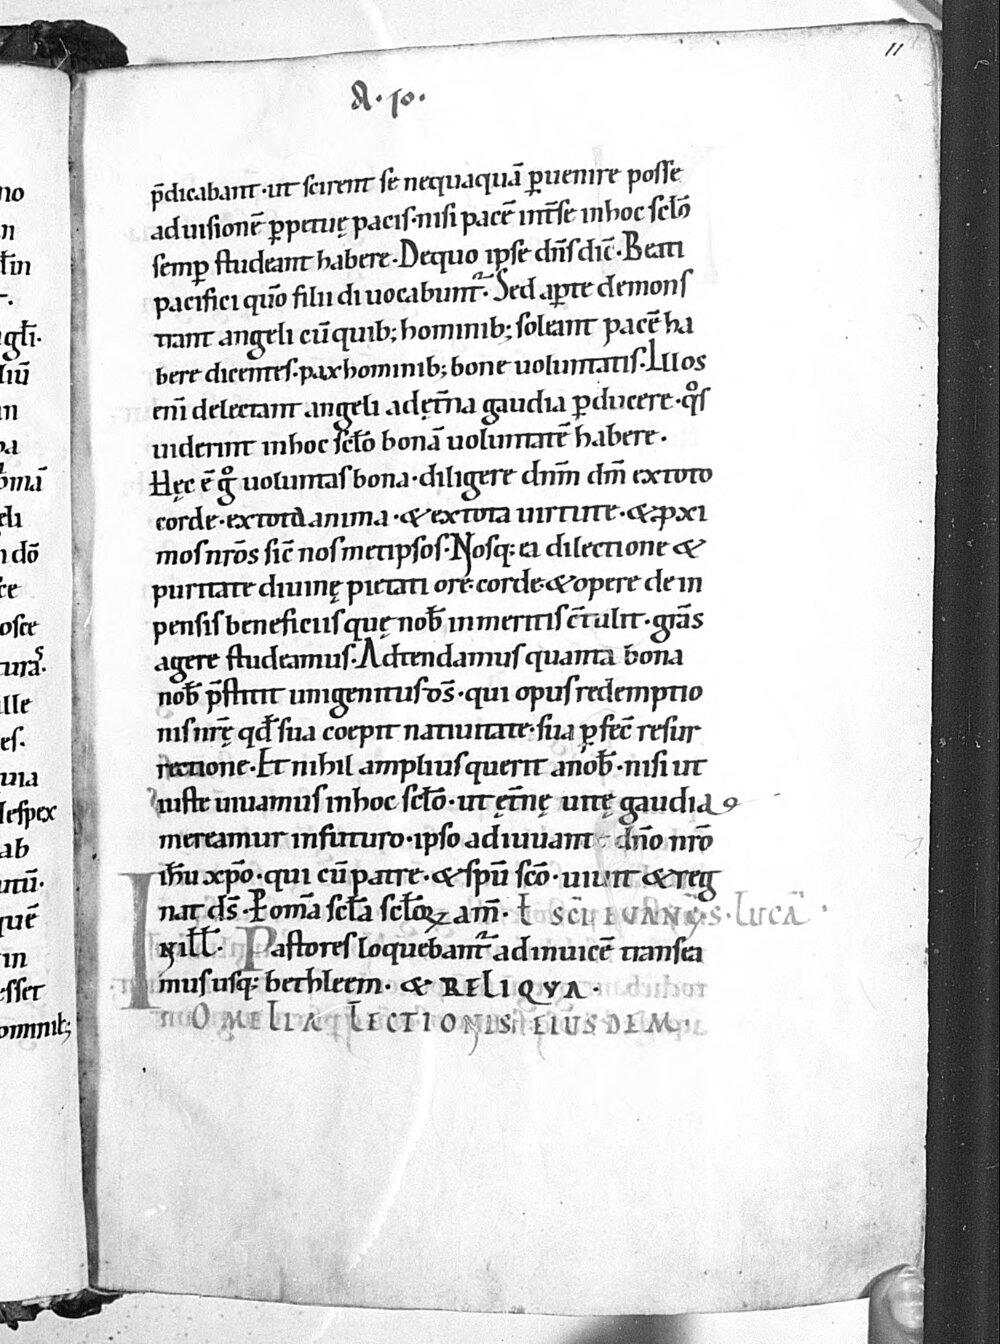 11
A · 10 ·
p̄dicabant · ut scirent se nequaquā ꝑuenire posse
ad uisionē ꝑpetuę pacis · nisi pacē int̄ se in hoc sc̄lo
semꝑ studeant habere · De quo ipse dn̄s dic̄ · Beati
pacifici qūo filii di uocabunt᷑ · Sed aꝑte demons
trant angeli cū quib; hominib; soleant pacē ha
bere dicentes · pax hominib; bone uoluntatis · Illos
eni̅ delectant angeli ad ęt̄na gaudia ꝑducere · qͦs
uiderint in hoc sc̄lo bonā uoluntatē habere ·
Hęc ē gͦ uoluntas bona · diligere dnm̄ dm̄ ex toto
corde · ex tota anima · & ex tota uirtute · & ꝓxi
mos nr̄os sic̄ nosmetipsos · Nosq; ei dilectione &
puritate diuinę pietati ore · corde · & opere de in
pensis beneficiis quę nob̄ inmeritis c̄tulit · gr̄as
agere studeamus · Adtendamus quanta bona
nob̄ p̄stitit unigenitus d̄s · qui opus redemptio
nis nr̄ę qđ sua coepit natiuitate · sua ꝑfec̄ resur
rectione · Et nihil amplius querit a nob̄ · nisi ut
iuste uiuamus in hoc sc̄lo · ut ęt̄nę uitę gaudia
mereamur in futuro · ipso adiuuante dn̄o nr̄o
ih̄u xp̄o · qui cū patre · & sp̄u sc̄o · uiuit & reg
nat ds̄ · P om̄a sc̄la sc̄loꝝ am̄ · SC̄I EVANḠ S · LUCĀ ·
In ill̄ · Pastores loquebant᷑ ad inuicē transea
mus usq; bethleem · & RELIQVA ·
OMELIA LECTIONIS EIUSDEM ·